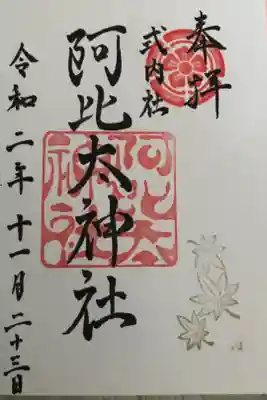 奉拝
式内社
阿比太神社
阿比太神社
令和二年十一月二十三日